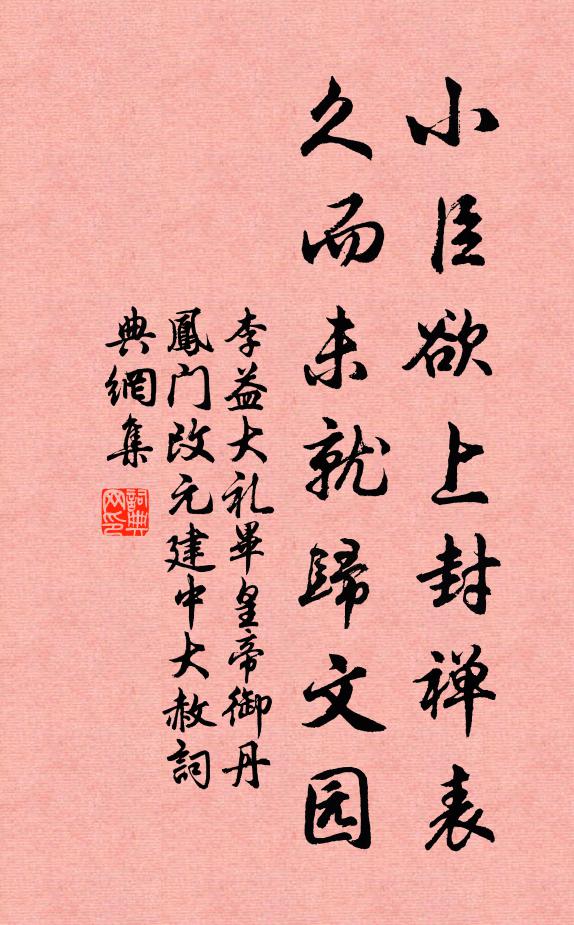 小臣欲上封禅表
久而未就歸文园
李益大礼畢皇帝御丹
鳳门改元建中大赦詞
典網集
詞典网印